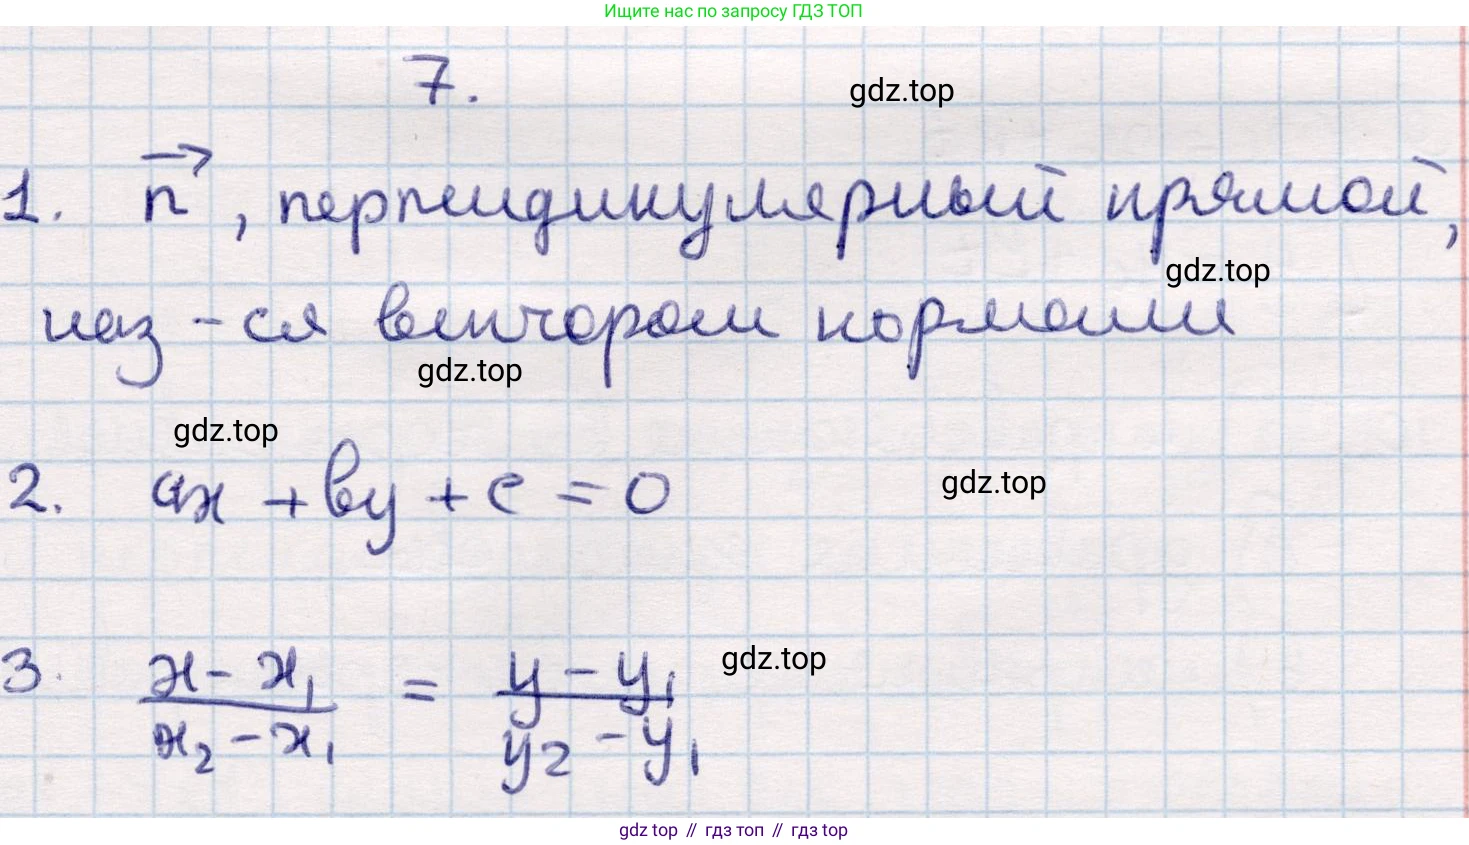 Ищите нас по запросу ГДЗ ТОП
7.
gdz.top
1. n⃗, перпендикулярный прямой,
gdz.top
наз-ся вектором нормали
gdz.top
gdz.top
2. ax + by + c = 0
gdz.top
3. (x - x₁)/(x₂ - x₁) = (y - y₁)/(y₂ - y₁)
gdz.top
gdz top // гдз топ // гдз top